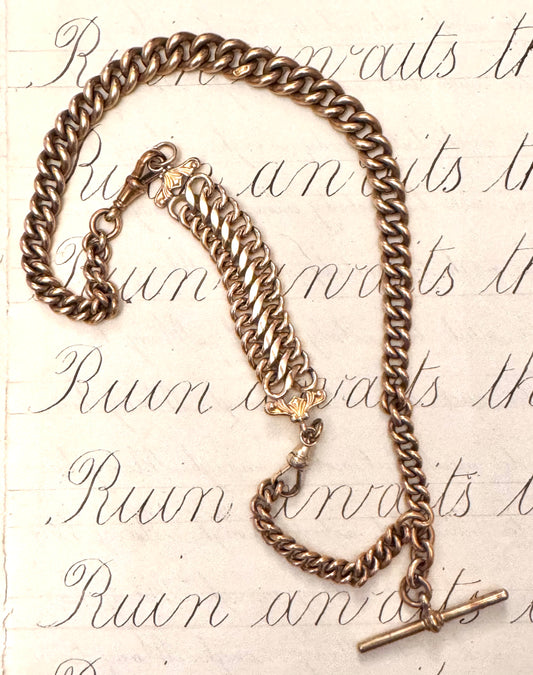 Ruin awaits th
Ruin awaits th
Ruin awaits th
Ruin awaits th
Ruin awaits th
Ruin awaits th
Ruin awaits th